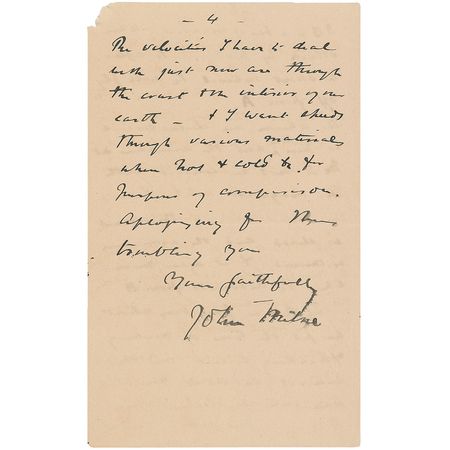 - 4 -
The velocities I have to deal
with just now are through
the crust & the interior of our
earth - & I want speeds
through various materials
when hot & cold &c for
purposes of comparison.
Apologising for thus
troubling you
Yours faithfully
John Milne